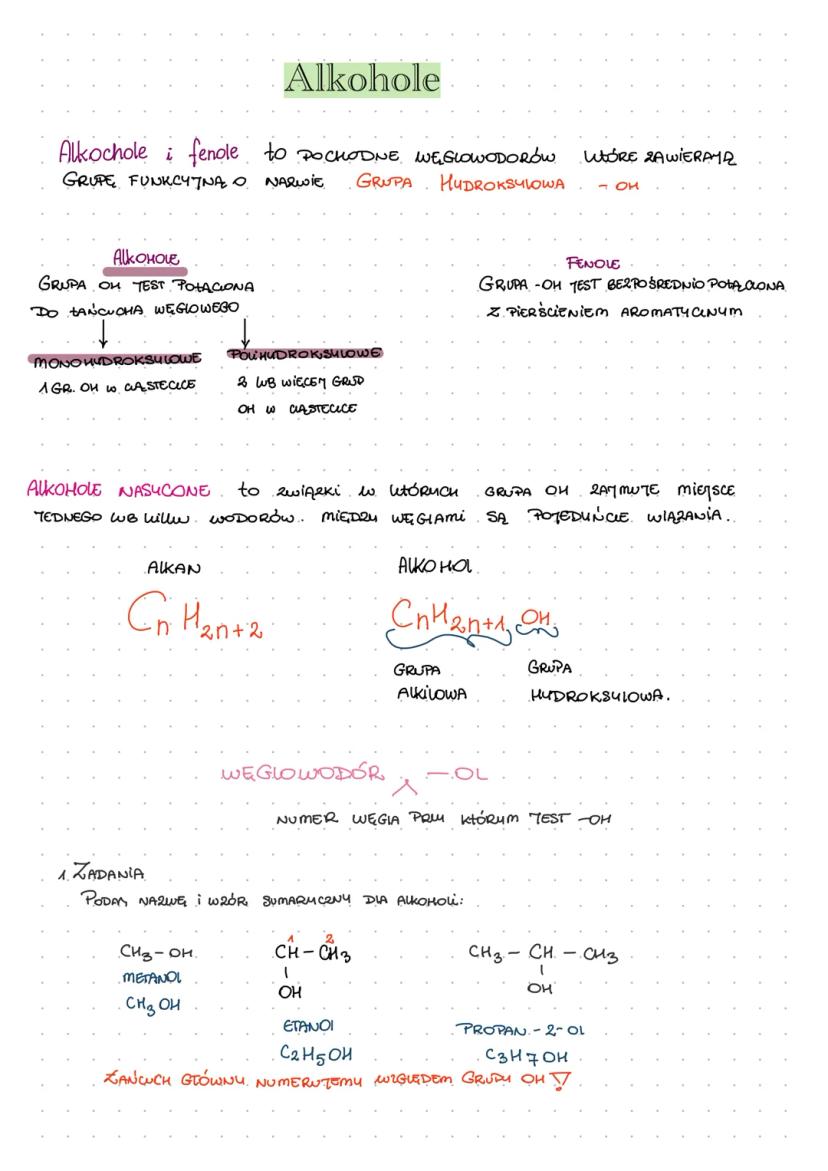 Alkohole
Alkochole i fenole to POCHODNE WĘGLOWODORÓW KTÓRE ZAWIERAJĄ
GRUPĘ FUNKCYJNĄ O NAZWIE GRUPA HYDROKSYLOWA - OH
ALKOHOLE
GRUPA OH JEST POŁĄCZONA
DO ŁAŃCUCHA WĘGLOWEGO
FENOLE
GRUPA -OH JEST BEZPOŚREDNIO POŁĄCZONA
Z PIERŚCIENIEM AROMATYCZNYM
MONOHYDROKSYLOWE
1 GR. OH W CZĄSTECZCE
POLIHYDROKSYLOWE
2 LUB WIĘCEJ GRUP
OH W CZĄSTECZCE
ALKOHOLE NASYCONE to związki w których GRUPA OH ZAJMUJE MIEJSCE
JEDNEGO LUB KILKU WODORÓW. MIĘDZY WĘGLAMI SĄ POJEDYŃCZE WIĄZANIA.
ALKAN ALKOHOL
CnH2n+2 CnH2n+1 OH
GRUPA GRUPA
ALKILOWA HYDROKSYLOWA.
WĘGLOWODÓR - OL
NUMER WĘGLA PRZY KTÓRYM JEST -OH
1. ZADANIA
PODAJ NAZWĘ i WZÓR SUMARYCZNY DLA ALKOHOLI:
CH3 - OH
METANOL
CH3OH
1 2
CH - CH3
OH
ETANOL
C2H5OH
CH3 - CH - CH3
OH
PROPAN - 2 - OL
C3H7OH
ŁAŃCUCH GŁÓWNY NUMERUJEMY WZGLĘDEM GRUPY OH !